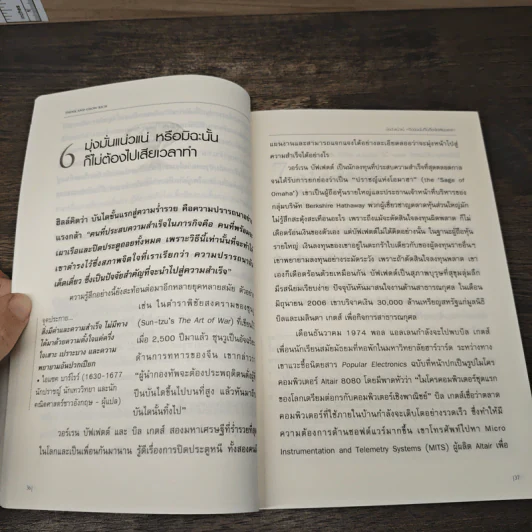 6 มุ่งมั่นแน่วแน่ หรือมิฉะนั้น
ก็ไม่ต้องไปเสียเวลาทำ
ฮิลล์คิดว่า บันไดขั้นแรกสู่ความร่ำรวย คือความปรารถนาอย่าง
แรงกล้า "คนที่ประสบความสำเร็จในภารกิจคือ คนที่พร้อมจะ
เผาเรือและปิดประตูถอยทั้งหมด เพราะวิธีนี้เท่านั้นที่จะทำให้
เขาดำรงไว้ซึ่งสภาพจิตใจที่เราเรียกว่า ความปรารถนาอัน
เด็ดเดี่ยว ซึ่งเป็นปัจจัยสำคัญที่จะนำไปสู่ความสำเร็จ"
ความรู้สึกอย่างนี้ยังสะท้อนต่อมาอีกหลายยุคหลายสมัย ตัวอย่าง
เช่น ในตำราพิชัยสงครามของซุนวู
(Sun-tzu's The Art of War) ที่เขียนขึ้น
เมื่อ 2,500 ปีมาแล้ว ซุนวูเป็นอัจฉริยะ
ด้านการทหารของจีน เขากล่าวว่า
"ผู้นำกองทัพจะประพฤติตนดังผู้ที่
ปีนบันไดขึ้นไปบนที่สูง แล้วหันมาถีบ
บันไดนั้นทิ้งไป"
จุดประกาย...
สิ่งมีค่าและความสำเร็จ ไม่มีทาง
ได้มาด้วยความตั้งใจแค่ครึ่ง
ใจเสาะ เปราะบาง และความ
พยายามอันปวกเปียก
• ไอแซค บาร์โรว์ (1630-1677
นักปราชญ์ นักเทววิทยา และนัก
คณิตศาสตร์ชาวอังกฤษ - ผู้แปล)
วอร์เรน บัฟเฟตต์ และ บิล เกตส์ สองมหาเศรษฐีที่ร่ำรวยที่สุด
ในโลกและเป็นเพื่อนกันมานาน รู้ดีเรื่องการปิดประตูหนี ทั้งสองคน
แผนงานและสามารถแจกแจงได้อย่างละเอียดตลอดว่าจะมุ่งหน้าไปสู่
ความสำเร็จได้อย่างไร
วอร์เรน บัฟเฟตต์ เป็นนักลงทุนที่ประสบความสำเร็จที่สุดตลอดกาล
จนได้รับการยกย่องว่าเป็น "ปราชญ์แห่งโอมาฮา" (the "Sage of
Omaha") เขาเป็นผู้ถือหุ้นรายใหญ่และประธานเจ้าหน้าที่บริหารของ
กลุ่มบริษัท Berkshire Hathaway พวกผู้เชี่ยวชาญตลาดหุ้นส่วนใหญ่มัก
ไม่รู้สึกสะดุ้งสะเทือนอะไร เพราะถึงแม้จะตัดสินใจลงทุนผิดพลาด ก็ไม่
เดือดร้อนเงินของตัวเอง แต่บัฟเฟตต์ไม่ได้คิดอย่างนั้น ในฐานะผู้ถือหุ้น
รายใหญ่ เงินลงทุนของเขาอยู่ในตะกร้าใบเดียวกับของผู้ลงทุนรายอื่นๆ
เขาพยายามลงทุนอย่างระมัดระวัง เพราะถ้าตัดสินใจลงทุนพลาด เขา
เองก็เดือดร้อนด้วยเหมือนกัน บัฟเฟตต์เป็นสุภาพบุรุษที่สุขุมลุ่มลึก
มีรสนิยมเรียบง่าย ปัจจุบันหันมาสนใจงานด้านสาธารณกุศล ในเดือน
มิถุนายน 2006 เขาบริจาคเงิน 30,000 ล้านเหรียญสหรัฐแก่มูลนิธิ
บิลและเมลินดา เกตส์ เพื่อกิจการสาธารณกุศล
เดือนธันวาคม 1974 พอล แอลเลนกำลังจะไปพบบิล เกตส์
เพื่อนนักเรียนสมัยมัธยมที่หอพักในมหาวิทยาลัยฮาร์วาร์ด ระหว่างทาง
เขาแวะซื้อนิตยสาร Popular Electronics ฉบับที่หน้าปกเป็นรูปไมโคร
คอมพิวเตอร์ Altair 8080 โดยมีพาดหัวว่า "ไมโครคอมพิวเตอร์ชุดแรก
ของโลกเตรียมต่อกรกับคอมพิวเตอร์เชิงพาณิชย์" บิล เกตส์เชื่อว่าตลาด
คอมพิวเตอร์ที่ใช้ภายในบ้านกำลังจะเติบโตอย่างรวดเร็ว ซึ่งทำให้มี
ความต้องการด้านซอฟต์แวร์มากขึ้น เขาโทรศัพท์ไปหา Micro
Instrumentation and Telemetry Systems (MITS) ผู้ผลิต Altair เพื่อ